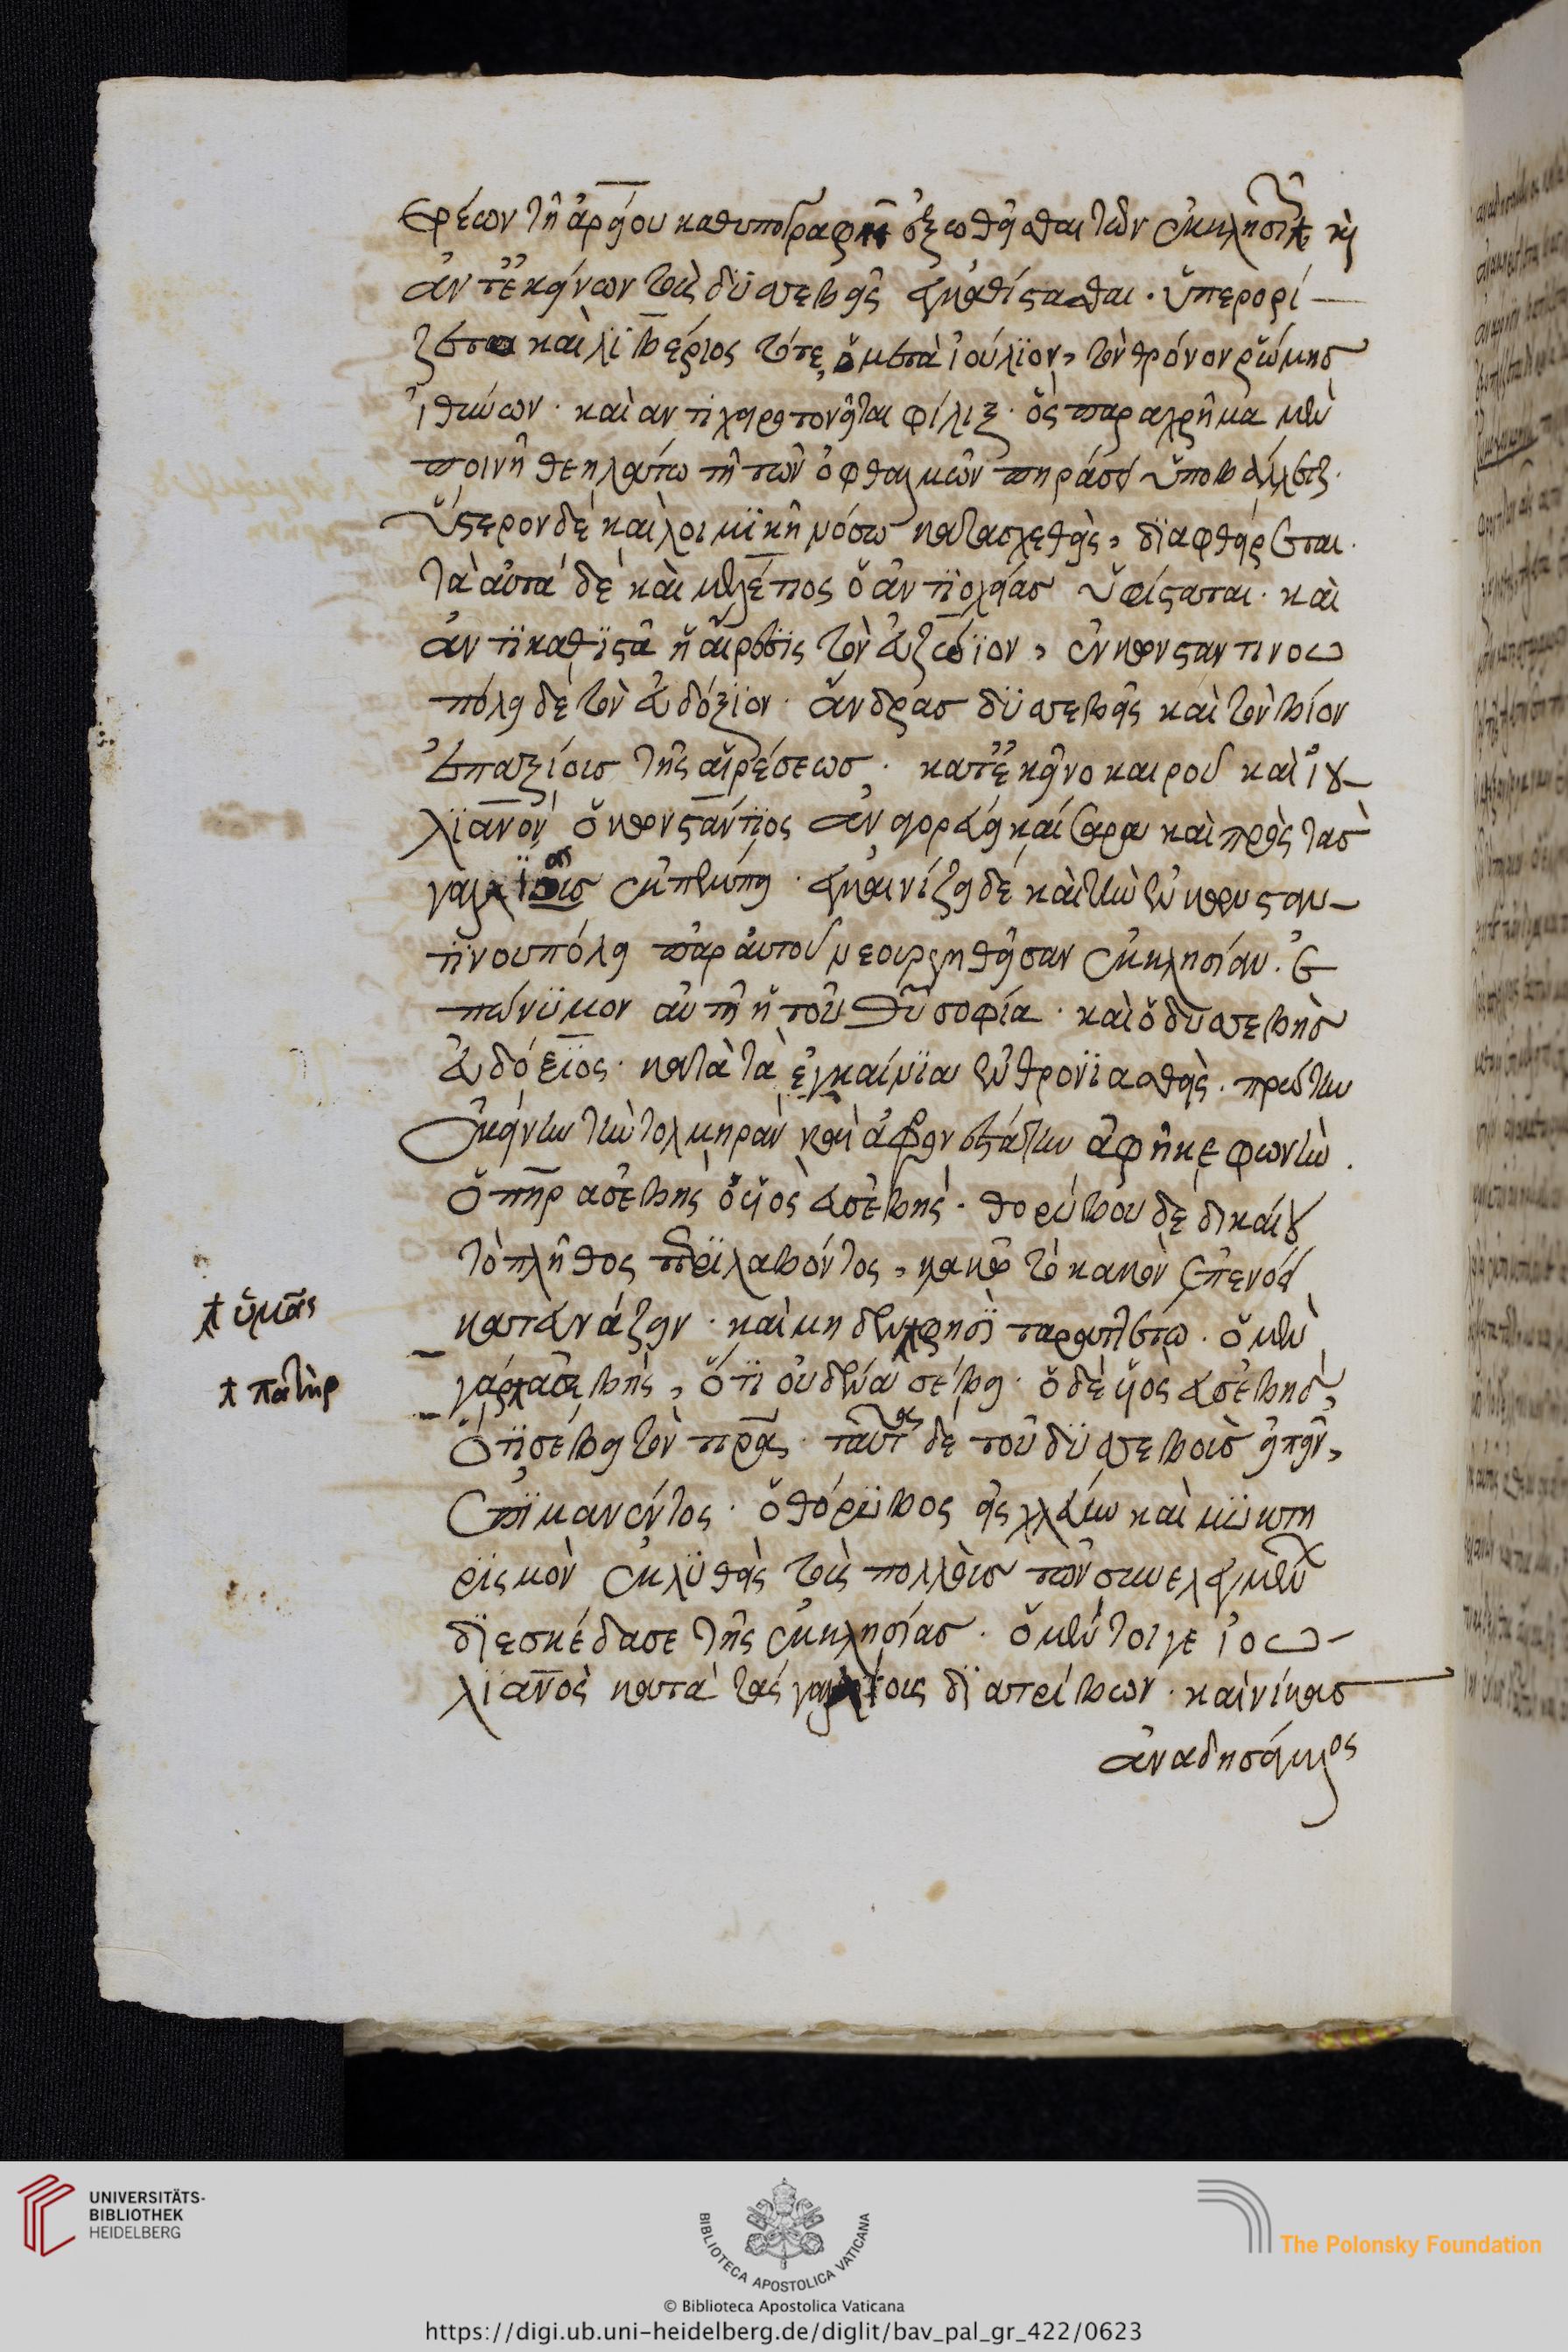 ερέων τῆ ἀρείου καθυπογραφῆ ἐξωθεῖσθαι τῶν ἐκκλησιῶν κὶ
ἀντ' ἐκείνων τοὺς δυσσεβεῖς ἐγκαθίστασθαι · ὑπερορί
ζεται καὶ λιβέριος τότε, ὁ μετὰ ἰούλιον, τὸν θρόνον ῥώμης
ἰθύνων · καὶ αντιχειροτονεῖται φίλιξ · ὃς παραχρῆμα μὲν
ποινῆ θεηλάτω τῆ τῶν ὀφθαλμῶν πηρώσει ὑποβάλλεται ·
ὕστερον δὲ καὶ λοιμικῆ νόσω κατασχεθεὶς, διαφθείρεται ·
τὰ αὐτὰ δὲ καὶ μελέτιος ὁ ἀντιοχείας ὑφίσταται · καὶ
ἀντικαθιστᾶ ἡ αἵρεσις τὸν εὐζώϊον, ἐν κωνσταντινου
πόλει δὲ τὸν εὐδόξιον · ἄνδρας δυσσεβεῖς καὶ τὸν βίον
ἐπαξίους τῆς αἱρέσεως · κατ' ἐκεῖνο καιροῦ καὶ ἰου
λιανὸν ὁ κωνστάντιος ἀναγορεύει καίσαρα καὶ πρὸς τὰς
γαλλίας ἐκπέμπει · ἐγκαινίζει δὲ καὶ τὴν ἐν κωνσταν
τινουπόλει παρ αὐτοῦ νεουργηθεῖσαν ἐκκλησίαν · ἐ
πώνυμον αὐτῆ ἡ τοῦ θυ σοφία · καὶ ὁ δυσσεβὴς
εὐδόξιος · κατὰ τὰ ἐγκαίνια ἐνθρονιασθεὶς · πρώτην
ἐκείνην τὴν τολμηρὰν καὶ ἀφρονεστάτην ἀφῆκε φωνὴν .
ὁ πηρ ασεβὴς ὁ υἱὸς εὐσεβής · θορύβου δὲ δικαίου
τὸ πλῆθος περιλαβόντος, κακῶ τὸ κακὸν ἐπενόει
κατευνάζειν · καὶ μηδὲν φησὶ ταραττέτω · ὁ μὲν
γὰρ ἀσεβής, ὅτι οὐδένα σέβει · ὁ δὲ υἱὸς εὐσεβὴς,
ὅτι σέβει τὸν πρα · ταῦτα δὲ τοῦ δυσσεβοῦς εἰπεῖν,
ἐπιμανέντος · ὁ θόρυβος εἰς χλεύην καὶ μυκτη
ρισμὸν ἐκλυθεὶς τοὺς πολλοὺς τῶν συνειλεγμένων
διεσκέδασε τῆς ἐκκλησίας · ὁ μέντοιγε ἰου
λιανὸς κατὰ τὰς γαλλίας διατρίβων · καὶ νίκας
ἀναδησάμενος
† ὑμᾶς
† πατὴρ
UNIVERSITÄTS-
BIBLIOTHEK
HEIDELBERG
BIBLIOTECA APOSTOLICA VATICANA
The Polonsky Foundation
© Biblioteca Apostolica Vaticana
https://digi.ub.uni-heidelberg.de/diglit/bav_pal_gr_422/0623